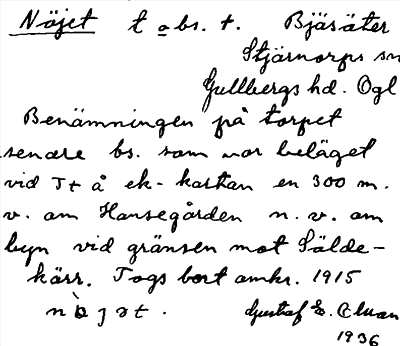 Nöjet t obs. t. Bjäsäter
Stjärnorps sn
Gullbergs hd. Ögl
Benämningen på torpet
senare bs. som var beläget
vid T+ å ek-kartan en 300 m.
v. om Hansegården n.v. om
byn vid gränsen mot Sälde-
kärr. Togs bort omkr. 1915
Gustaf E.
1936